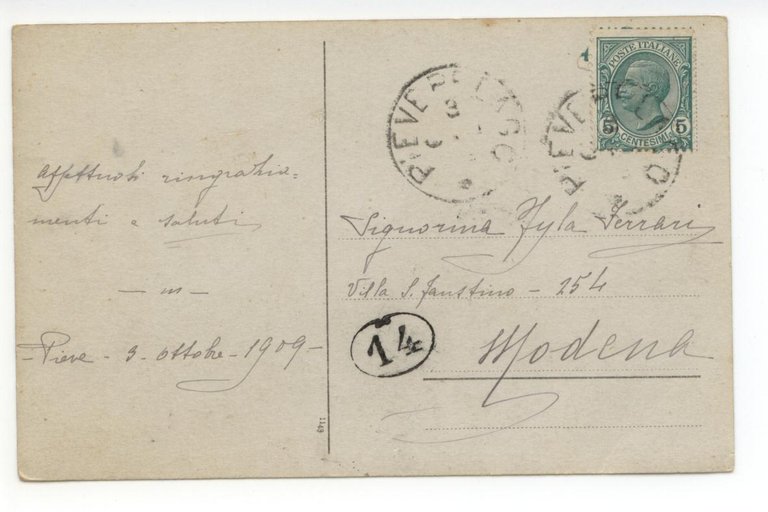 Affettuosi ringrazia=
menti e saluti
Pieve - 3 ottobre - 1909 -
1149
POSTE ITALIANE
5 5
CENTESIMI
PIEVE
PIEVE
Signorina Jyla Ferrari
Villa S. Faustino - 254
14
Modena